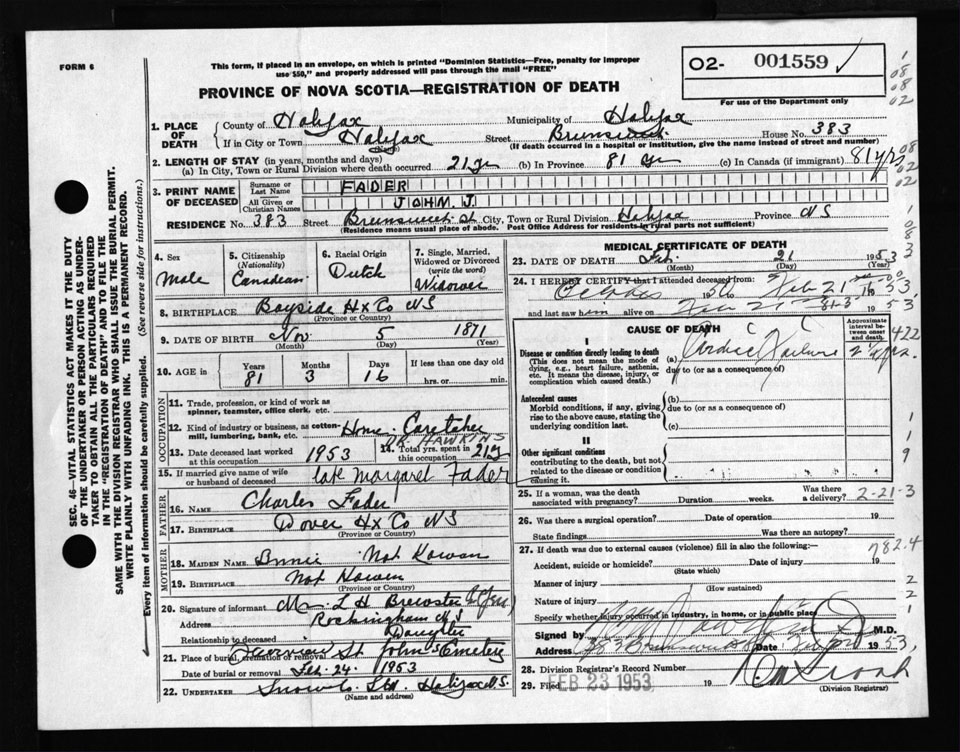 FORM 6
This form, if placed in an envelope, on which is printed "Dominion Statistics—Free, penalty for improper
use $50," and properly addressed will pass through the mail "FREE"
O2- 001559 ✓
For use of the Department only
PROVINCE OF NOVA SCOTIA—REGISTRATION OF DEATH
1. PLACE OF DEATH { County of Halifax Municipality of Halifax
If in City or Town Halifax (Name) Street Brunswick House No. 383
(If death occurred in a hospital or institution, give the name instead of street and number)
2. LENGTH OF STAY (in years, months and days)
(a) In City, Town or Rural Division where death occurred 21 yr (b) In Province 81 yr (c) In Canada (if immigrant) 81 yrs
3. PRINT NAME OF DECEASED { Surname or Last Name FADER
All Given or Christian Names JOHN. J.
RESIDENCE No. 383 Street Brunswick St City, Town or Rural Division Halifax Province NS
(Residence means usual place of abode. Post Office Address for residents in rural parts not sufficient)
4. Sex Male
5. Citizenship (Nationality) Canadian
6. Racial Origin Dutch
7. Single, Married, Widowed or Divorced (write the word) Widower
8. BIRTHPLACE Bayside Hx Co NS
(Province or Country)
9. DATE OF BIRTH Nov 5 1871
(Month) (Day) (Year)
10. AGE in Years 81 Months 3 Days 16 If less than one day old hrs. or min.
OCCUPATION
11. Trade, profession, or kind of work as spinner, teamster, office clerk, etc.
12. Kind of industry or business, as cotton-mill, lumbering, bank, etc. Home. Caretaker
DR. HAWKINS
13. Date deceased last worked at this occupation 1953
14. Total yrs. spent in this occupation 21 yr
15. If married give name of wife or husband of deceased late Margaret Fader
FATHER
16. NAME Charles Fader
17. BIRTHPLACE Dover Hx Co NS
(Province or Country)
MOTHER
18. MAIDEN NAME Annie Not Kowan
19. BIRTHPLACE Not Kowen
(Province or Country)
20. Signature of informant L H Brewster
Address Rockingham N S
Relationship to deceased Daughter
21. Place of burial, cremation or removal Fairview St. John's Cemetery
Date of burial or removal Feb. 24. 1953
22. UNDERTAKER Snow Co Ltd. Halifax N.S.
(Name and address)
MEDICAL CERTIFICATE OF DEATH
23. DATE OF DEATH Feb. 21 1953
(Month) (Day) (Year)
24. I HEREBY CERTIFY that I attended deceased from
October Feb 21 1953
and last saw him alive on Feb 21 1953
CAUSE OF DEATH
Approximate interval between onset and death
I
Disease or condition directly leading to death
(This does not mean the mode of dying, e.g., heart failure, asthenia, etc. It means the disease, injury, or complication which caused death.)
(a) Cardiac Failure 2 yrs.
due to (or as a consequence of)
422
Antecedent causes
Morbid conditions, if any, giving rise to the above cause, stating the underlying condition last.
(b)
due to (or as a consequence of)
(c)
II
Other significant conditions
contributing to the death, but not related to the disease or condition causing it.
25. If a woman, was the death associated with pregnancy? Duration weeks. Was there a delivery? 2-21-3
26. Was there a surgical operation? Date of operation 19
State findings Was there an autopsy?
27. If death was due to external causes (violence) fill in also the following:—
782.4
Accident, suicide or homicide? Date of injury 19
(State which)
Manner of injury
(How sustained)
Nature of injury
Specify whether injury occurred in industry, in home, or in public place
Signed by M.D.
Address 383 Brunswick St Date 1953,
28. Division Registrar's Record Number
29. Filed FEB 23 1953 19
(Division Registrar)
SEC. 46—VITAL STATISTICS ACT MAKES IT THE DUTY
OF THE UNDERTAKER OR PERSON ACTING AS UNDER-
TAKER TO OBTAIN ALL THE PARTICULARS REQUIRED
IN THE "REGISTRATION OF DEATH" AND TO FILE THE
SAME WITH THE DIVISION REGISTRAR WHO SHALL ISSUE THE BURIAL PERMIT.
WRITE PLAINLY WITH UNFADING INK. THIS IS A PERMANENT RECORD.
Every item of information should be carefully supplied. (See reverse side for instructions.)